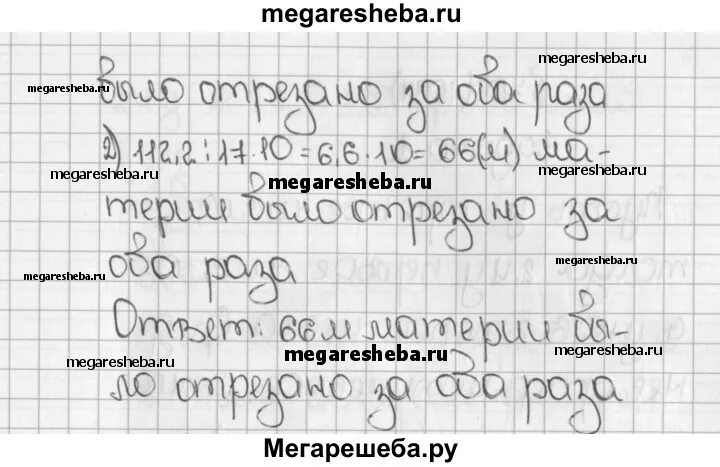 megaresheba.ru
было отрезано за оба раза
megaresheba.ru
megaresheba.ru
2) 112,2:17·10=6,6·10=66(м) ма-
megaresheba.ru
megaresheba.ru
megaresheba.ru
терии было отрезано за
оба раза
megaresheba.ru
megaresheba.ru
Ответ: 66м материи бы-
megaresheba.ru
megaresheba.ru
megaresheba.ru
ло отрезано за оба раза
Мегарешеба.ру